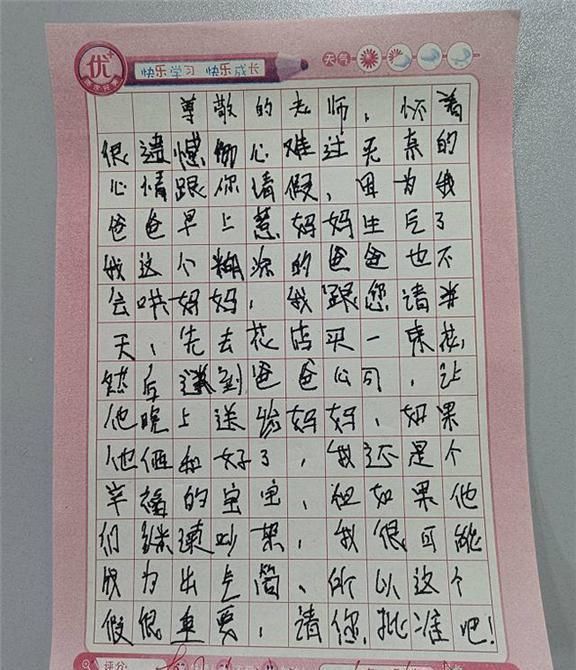 优
快乐学习 快乐成长
天气
尊敬的老师，怀着
很遗憾伤心难过无奈的
心情跟你请假，因为我
爸爸早上惹妈妈生气了
我这个糊涂的爸爸也不
会哄妈妈，我跟您请半
天，先去花店买一束花，
然后送到爸爸公司，让
他晚上送给妈妈，如果
他俩和好了，我还是个
幸福的宝宝，但如果他
们继续吵架，我很可能
成为出气筒，所以这个
假很重要，请你批准吧！
评分：